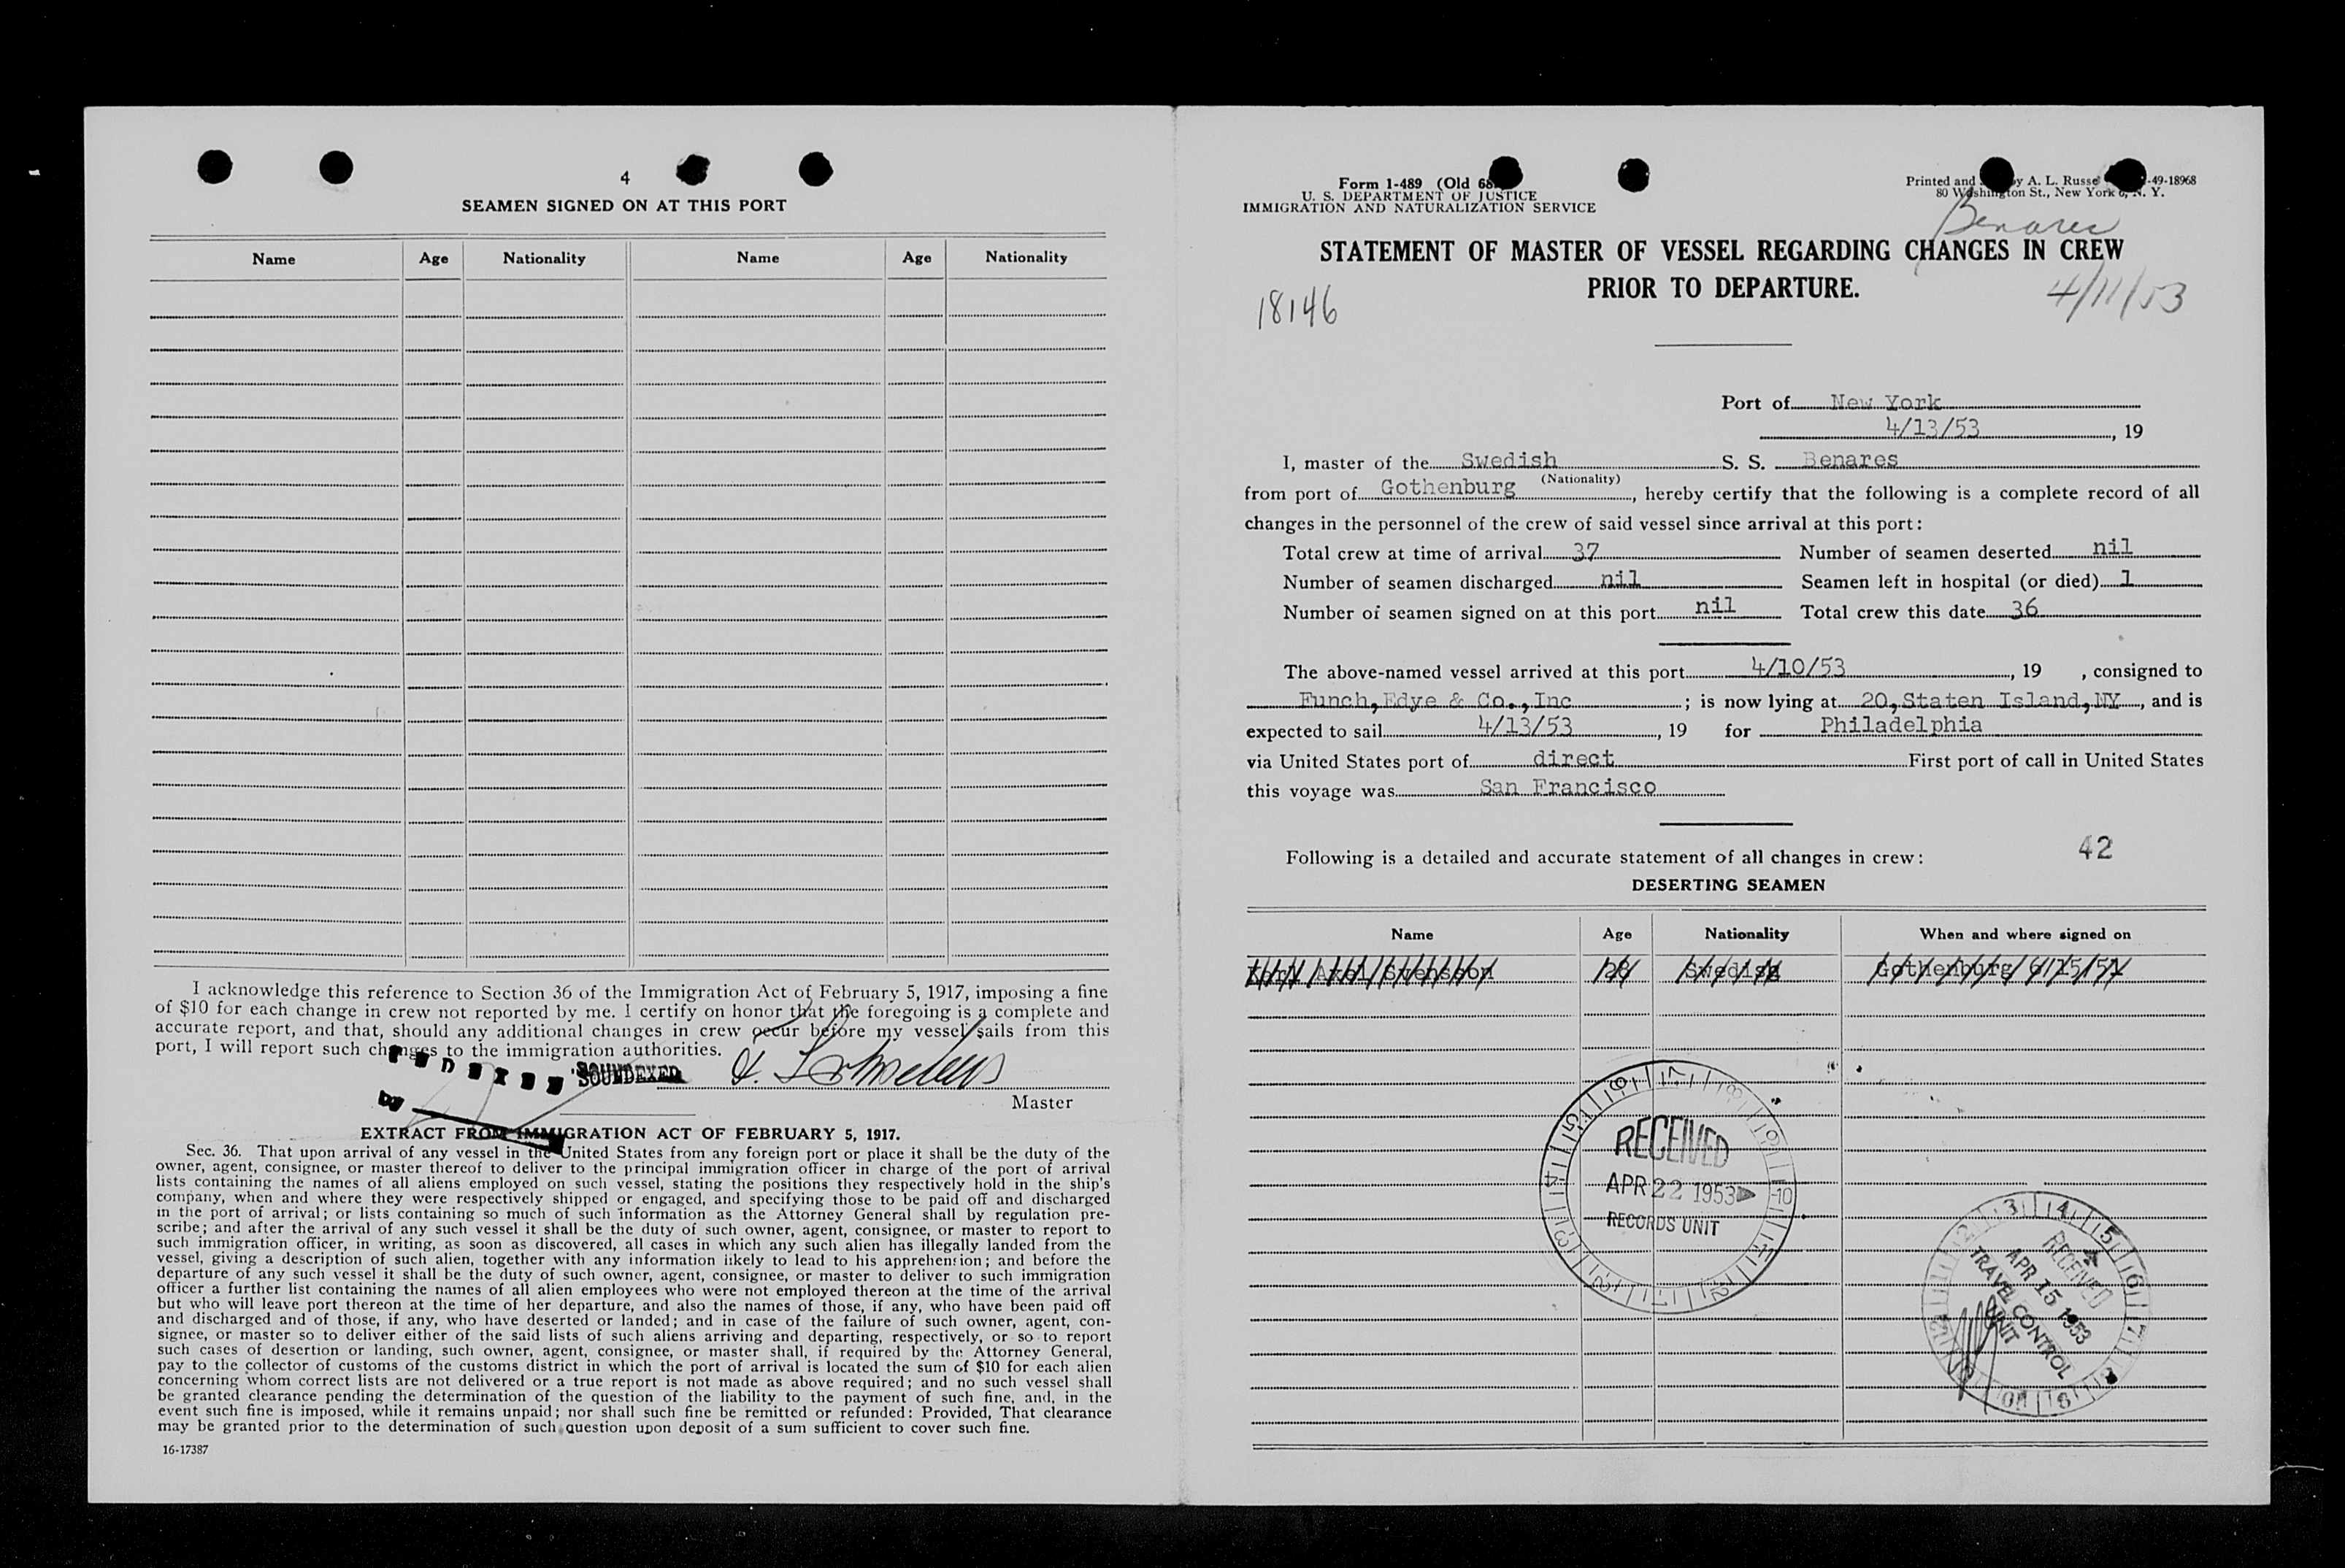 4
SEAMEN SIGNED ON AT THIS PORT
Name Age Nationality Name Age Nationality
I acknowledge this reference to Section 36 of the Immigration Act of February 5, 1917, imposing a fine
of $10 for each change in crew not reported by me. I certify on honor that the foregoing is a complete and
accurate report, and that, should any additional changes in crew occur before my vessel sails from this
port, I will report such changes to the immigration authorities.
SOUNDEXED
Master
EXTRACT FROM IMMIGRATION ACT OF FEBRUARY 5, 1917.
Sec. 36. That upon arrival of any vessel in the United States from any foreign port or place it shall be the duty of the
owner, agent, consignee, or master thereof to deliver to the principal immigration officer in charge of the port of arrival
lists containing the names of all aliens employed on such vessel, stating the positions they respectively hold in the ship's
company, when and where they were respectively shipped or engaged, and specifying those to be paid off and discharged
in the port of arrival; or lists containing so much of such information as the Attorney General shall by regulation pre-
scribe; and after the arrival of any such vessel it shall be the duty of such owner, agent, consignee, or master to report to
such immigration officer, in writing, as soon as discovered, all cases in which any such alien has illegally landed from the
vessel, giving a description of such alien, together with any information likely to lead to his apprehension; and before the
departure of any such vessel it shall be the duty of such owner, agent, consignee, or master to deliver to such immigration
officer a further list containing the names of all alien employees who were not employed thereon at the time of the arrival
but who will leave port thereon at the time of her departure, and also the names of those, if any, who have been paid off
and discharged and of those, if any, who have deserted or landed; and in case of the failure of such owner, agent, con-
signee, or master so to deliver either of the said lists of such aliens arriving and departing, respectively, or so to report
such cases of desertion or landing, such owner, agent, consignee, or master shall, if required by the Attorney General,
pay to the collector of customs of the customs district in which the port of arrival is located the sum of $10 for each alien
concerning whom correct lists are not delivered or a true report is not made as above required; and no such vessel shall
be granted clearance pending the determination of the question of the liability to the payment of such fine, and, in the
event such fine is imposed, while it remains unpaid; nor shall such fine be remitted or refunded: Provided, That clearance
may be granted prior to the determination of such question upon deposit of a sum sufficient to cover such fine.
16-17387
Form 1-489 (Old 68
U. S. DEPARTMENT OF JUSTICE
IMMIGRATION AND NATURALIZATION SERVICE
Printed and by A. L. Russe -49-18968
80 Washington St., New York 6, N. Y.
Benares
STATEMENT OF MASTER OF VESSEL REGARDING CHANGES IN CREW
PRIOR TO DEPARTURE.
18146
4/11/53
Port of New York
4/13/53, 19
I, master of the Swedish S. S. Benares
(Nationality)
from port of Gothenburg, hereby certify that the following is a complete record of all
changes in the personnel of the crew of said vessel since arrival at this port:
Total crew at time of arrival 37 Number of seamen deserted nil
Number of seamen discharged nil Seamen left in hospital (or died) 1
Number of seamen signed on at this port nil Total crew this date 36
The above-named vessel arrived at this port 4/10/53, 19 , consigned to
Funch,Edye & Co.,Inc ; is now lying at 20,Staten Island,NY, and is
expected to sail 4/13/53, 19 for Philadelphia
via United States port of direct First port of call in United States
this voyage was San Francisco
42
Following is a detailed and accurate statement of all changes in crew:
DESERTING SEAMEN
Name Age Nationality When and where signed on
Axel Svensson 28 Swedish Gothenburg
RECEIVED
APR 22 1953
RECORDS UNIT
RECEIVED
APR 15 1953
TRAVEL CONTROL
UNIT